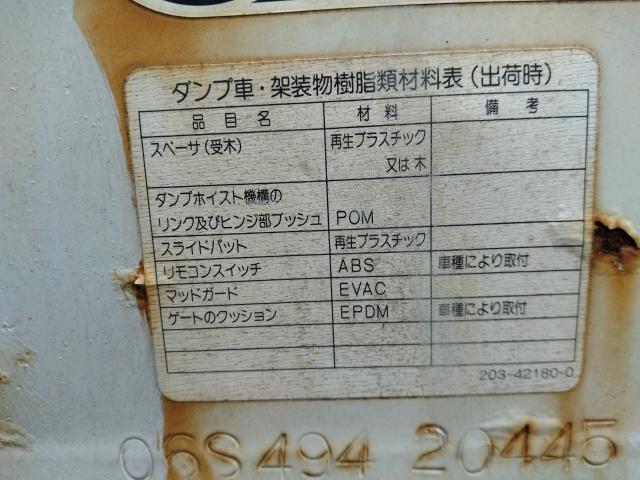 ダンプ車・架装物樹脂類材料表（出荷時）
品目名 材料 備考
スペーサ（受木） 再生プラスチック
又は木
ダンプホイスト機構の
リンク及びヒンジ部ブッシュ POM
スライドパット 再生プラスチック
リモコンスイッチ ABS 車種により取付
マッドガード EVAC
ゲートのクッション EPDM 車種により取付
203-42180-0
06S494 20445